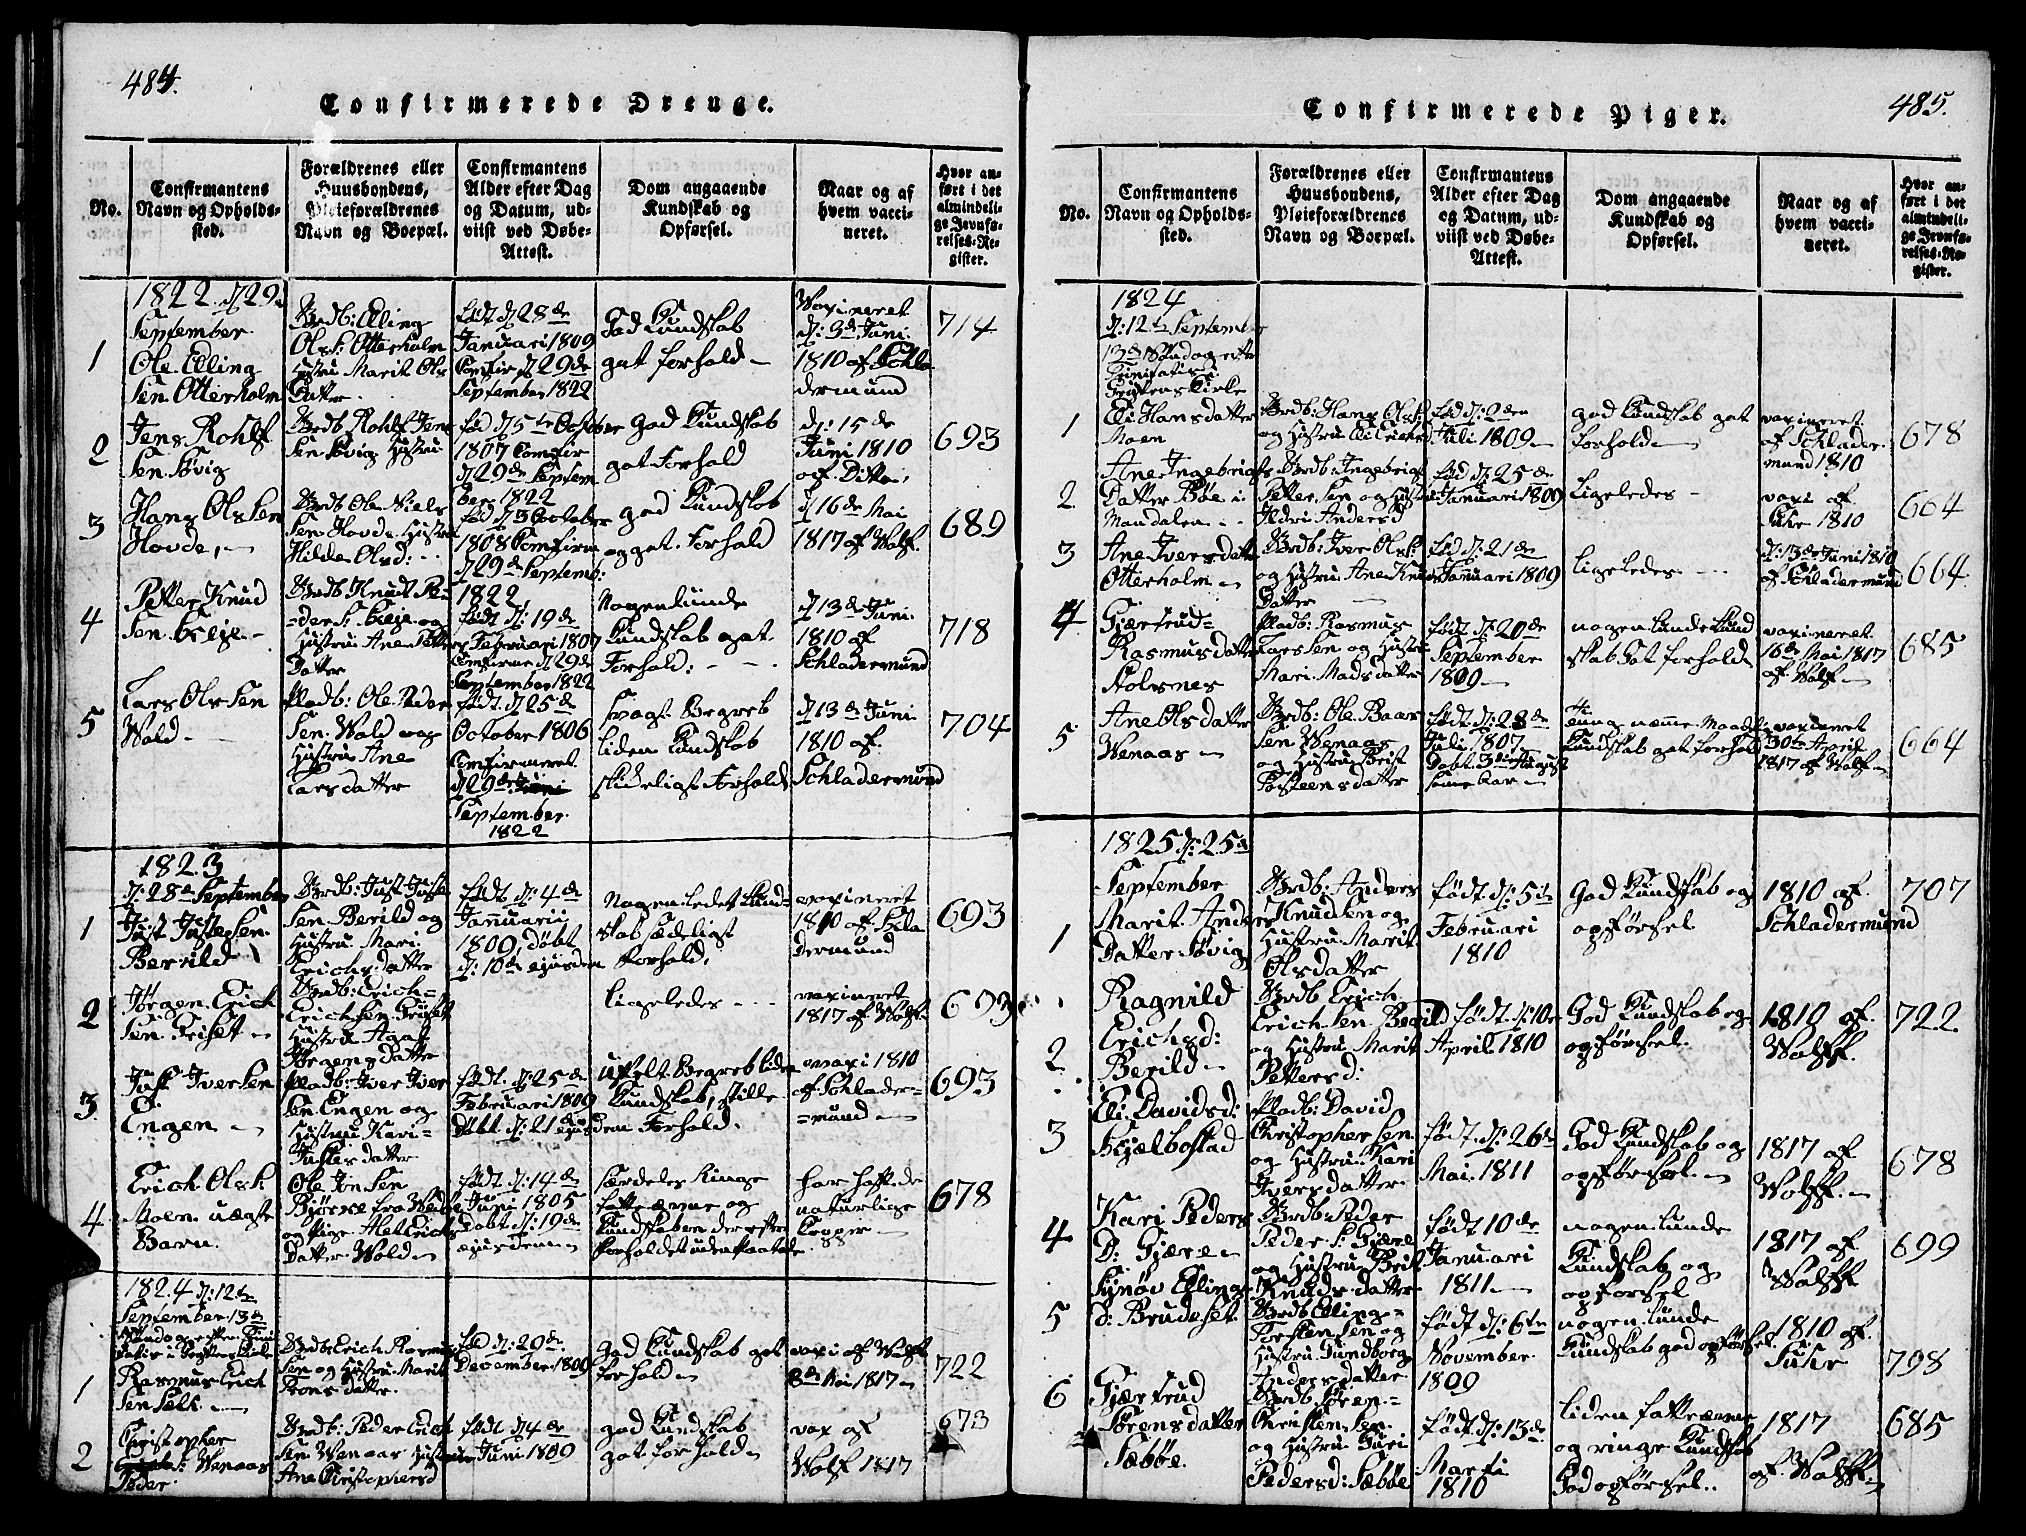 484.
Confirmerede Drenge.
No.
Confirmantens
Navn og Opholds-
sted.
Forældrenes eller
Huusbondens,
Pleieforældrenes
Navn og Boepæl.
Confirmantens
Alder efter Dag
og Datum, ud-
viist ved Døbe-
Attest.
Dom angaaende
Kundskab og
Opførsel.
Naar og af
hvem vacci-
neret.
Hvor an-
ført i det
almindeli-
ge Jevnfø-
relses-Re-
gister.
1822 d 29
September
1
Ole Elling
Sen Otterholm
Brdb: Elling
Ols S: Otterholm
Hustru Marit Ols
Datter
født d 28de
Januari 1809
Confir d 29de
September 1822
God Kundskab
gat forhold
Vaxineret
d: 3de Juni
1810 af Schla
dermund
714
2
Jens Rohlf
Sen Søvig
Brdb Rohlf Jens
Sen Søvig Hustru
fød d 5te October
1807 Confir
d 29de Septem
ber 1822
god Kundskab
gat Forhold
d: 15de
Juni 1810
af Ditto
693
3
Hans Ols Sen
Hovde
Brdb Ole Niels
Sen Hovde Hustru
Hilde Olsd:
fød d 3 October
1808 Confirm
d 29de Septemb:
1822
god Kundskab
og gat Forhold
d 16de Mai
1817 af Wolf.
689
4
Petter Knud
Sen
Brdb Knud Pe
der S. og
Hustru Ane Petters
Datter
født d: 19de
Februari 1807
Confirme d 29de
September 1822
Nogenlunde
Kundskab gat
Forhold:
d 13de Juni
1810 af
Schladermund
718
5
Lars Ols Sen
Wold
Pladb: Ole Peder
Sen Wold og
Hustru Ane
Larsdatter
født d 25de
October 1806
Confirmeret
d 29de
September
1822
svagt Begreb
liden Kundskab
skikeligt Forhold
d 13de Juni
1810 af
Schladermund
704
1823
d: 28de September
1
Just Justesen
Berild
Brdb: Just Juste
Sen Berild og
Hustru Mari
Erichsdatter
født d: 4de
Januarii
1809, døbt
d: 10de ejusdem
Nogenledet Kund-
skab sædeligt
forhold,
vaxineret
1810 af Schla
dermund
693
2
Jørgen Erich
Sen Griset
Brdb: Erich
Erichsen Griset
Hustru Agat
Jørgensdatter
ligeledes
vaxineret
1817 af Wolf.
693
3
Just Iversen
Engen
Pladb: Iver Iver
Sen Engen og
Hustru Kari
Justesdatter
født d: 25de
Februari 1809
Døbt d: 21 ejusdem
Begreb liden
Kundskab, stille
Forhold.
vaxi 1810
af Schlader-
mund
693
4
Erich Ols S:
Moen uægte
Barn
Ole Jon Sen
Bjørset fra
og Pige Alet Erichs
Datter Wold
født d: 14de
Juni 1805
Døbt d: 19de
ejusdem
særdeles ringe
fatteævne og
Kundskaben derefter
forholdet uden paatale
har haft de
naturlige
Kopper
678
1824 d: 12te
September 13de
Søndag efter Trini
tatis i Grytten Kirke
1
Rasmus Erich
Sen Sett
Brdb: Erich Rasmus
Sen og Hustru Marit
Tronsdatter
fød d: 29de
December 1809
god Kundskab gat
forhold
vaxi af Wolf
8de Mai 1817
722
2
Christopher
Peder S: Wenaas
Brdb: Peder Erich
Sen Wenaas Hustru
Ane Christophersd
født d 4de
Juni 1809
god Kundskab
gat forhold
vax af
Wolf 1817
673
485.
Confirmerede Piger.
No.
Confirmantens
Navn og Opholds-
sted.
Forældrenes eller
Huusbondens,
Pleieforældrenes
Navn og Boepæl.
Confirmantens
Alder efter Dag
og Datum, ud-
viist ved Døbe-
Attest.
Dom angaaende
Kundskab og
Opførsel.
Naar og af
hvem vacci-
neret.
Hvor an-
ført i det
almindeli-
ge Jevnfø-
relses-Re-
gister.
1824
d: 12te September
13de Søndag efter
Trinitatis i
Gryttens Kirke
1
Eli Hansdatter
Moen
Brdb: Hans Ols S:
og Hustru Eli
fød d: 2den
Juli 1809
god Kundskab gat
forhold
vaxineret
af Schlader
mund 1810
678
2
Ane Ingebrigts
Datter Bøe i
Mandalen
Brdb: Ingebrigt
Petter Sen og Hustru
Ildri Andersd
fød d: 25de
Januari 1809
Ligeledes
vaxi af
Suhr 1810
664
3
Ane Iversdatter
Otterholm
Brdb: Iver Ols S:
og Hustru Ane Knuds
Datter
fød d: 21de
Januari 1809
ligeledes
d: 13de Juni 1810
af Schladermund
664
4
Gjærtrud
Rasmusdatter
Holsnes
Pladb: Rasmus
Lars Sen og Hustru
Mari Madsdatter
født d: 20de
September
1809
nogenlunde Kund
skab Gat forhold
vaxineret
16de Mai 1817
af Wolf
685
5
Ane Olsdatter
Wenaas
Brdb: Ole Baar
Sen Wenaas
og Hustru Berit
Torsteensdatter
født d: 28de
Juli 1807
Døbt 3die August
same aar
Kundskab gat forhold
vaxineret
30te April
1817 af Wolf
664
1825 d: 25de
September
1
Marit Anders
Datter Søvig
Brdb: Anders
Knudsen og
Hustru Marit
Olsdatter
født d: 5te
Februari
1810
God Kundskab og
opførsel
1810 af
Schladermund
707
2
Ragnild
Erichsd:
Berild
Brdb Erich
Erich Sen Berild
og Hustru Marit
Pettersd:
født d: 10de
April 1810
God Kundskab og
opførsel.
1810 af
Wolff.
722
3
Eli Davidsd:
Hjelbostad
Pladb: David
Christophersen
og Hustru Kari
Iversdatter
født d: 26de
Mai 1811
God Kundskab og
opførsel
1817 af
Wolff.
678
4
Kari Peders
D: Gjære
Brdb: Peder
Peder S: Gjære
og Hustru Berit
Knudsdatter
født 10de
Januari
1811
nogenlunde
Kundskab og
opførsel
1817 af
Wolff
699
5
Synøv Ellings
d: Brudeset
Brdb Elling
Torsten Sen og
Hustru Gundborg
Andersdatter
født d: 6te
November
1809
nogenlunde
Kundskab god opførsel
1810 af
Suhr
798
6
Gjærtrud
Sørensdatter
Sæbøe.
Brdb. Søren
Christen Sen
og Hustru Guri
Pedersd: Sæbøe
født d: 13de
Marti
1810
liden fatteævne
og ringe Kundskab
God opførsel.
1817
af Wolff
685